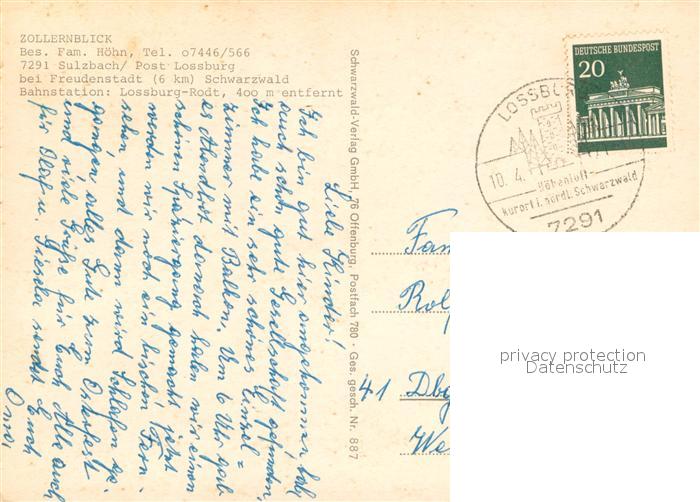 ZOLLERNBLICK
Bes. Fam. Höhn, Tel. o7446/566
7291 Sulzbach/ Post Lossburg
bei Freudenstadt (6 km) Schwarzwald
Bahnstation: Lossburg-Rodt, 4oo m entfernt
Liebe Kinder!
Ich bin gut hier angekommen hab
auch schon gute Gesellschaft gefunden,
Ich habe ein sehr schönes Einzel=
zimmer mit Balkon. Um 6 Uhr gab
es Abendbrot danach haben wir einen
schönen Spaziergang gemacht jetzt
werden wir noch ein bischen Fern
sehen und dann wird schlafen ge-
gangen, alles Gute zum Osterfest
und viele Grüße für Euch Alle auch
für Olaf u. sendet Euch
Oma
Schwarzwald-Verlag GmbH, 76 Offenburg, Postfach 780 · Ges. gesch. Nr. 887
DEUTSCHE BUNDESPOST
20
LOSSBUR
10. 4.
Höhenluft-
kurort i. nördl. Schwarzwald
7291
Fam
Rol
41 Dbg
We
privacy protection
Datenschutz